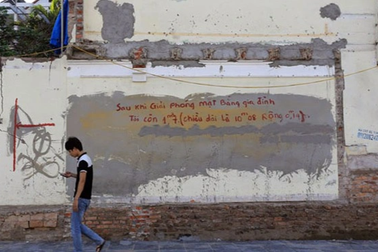 Sau khi Giải Phóng mặt Bằng gia đình
Tôi còn 1 m2 7. (chiều dài là 10 m 08 Rộng 0,17).